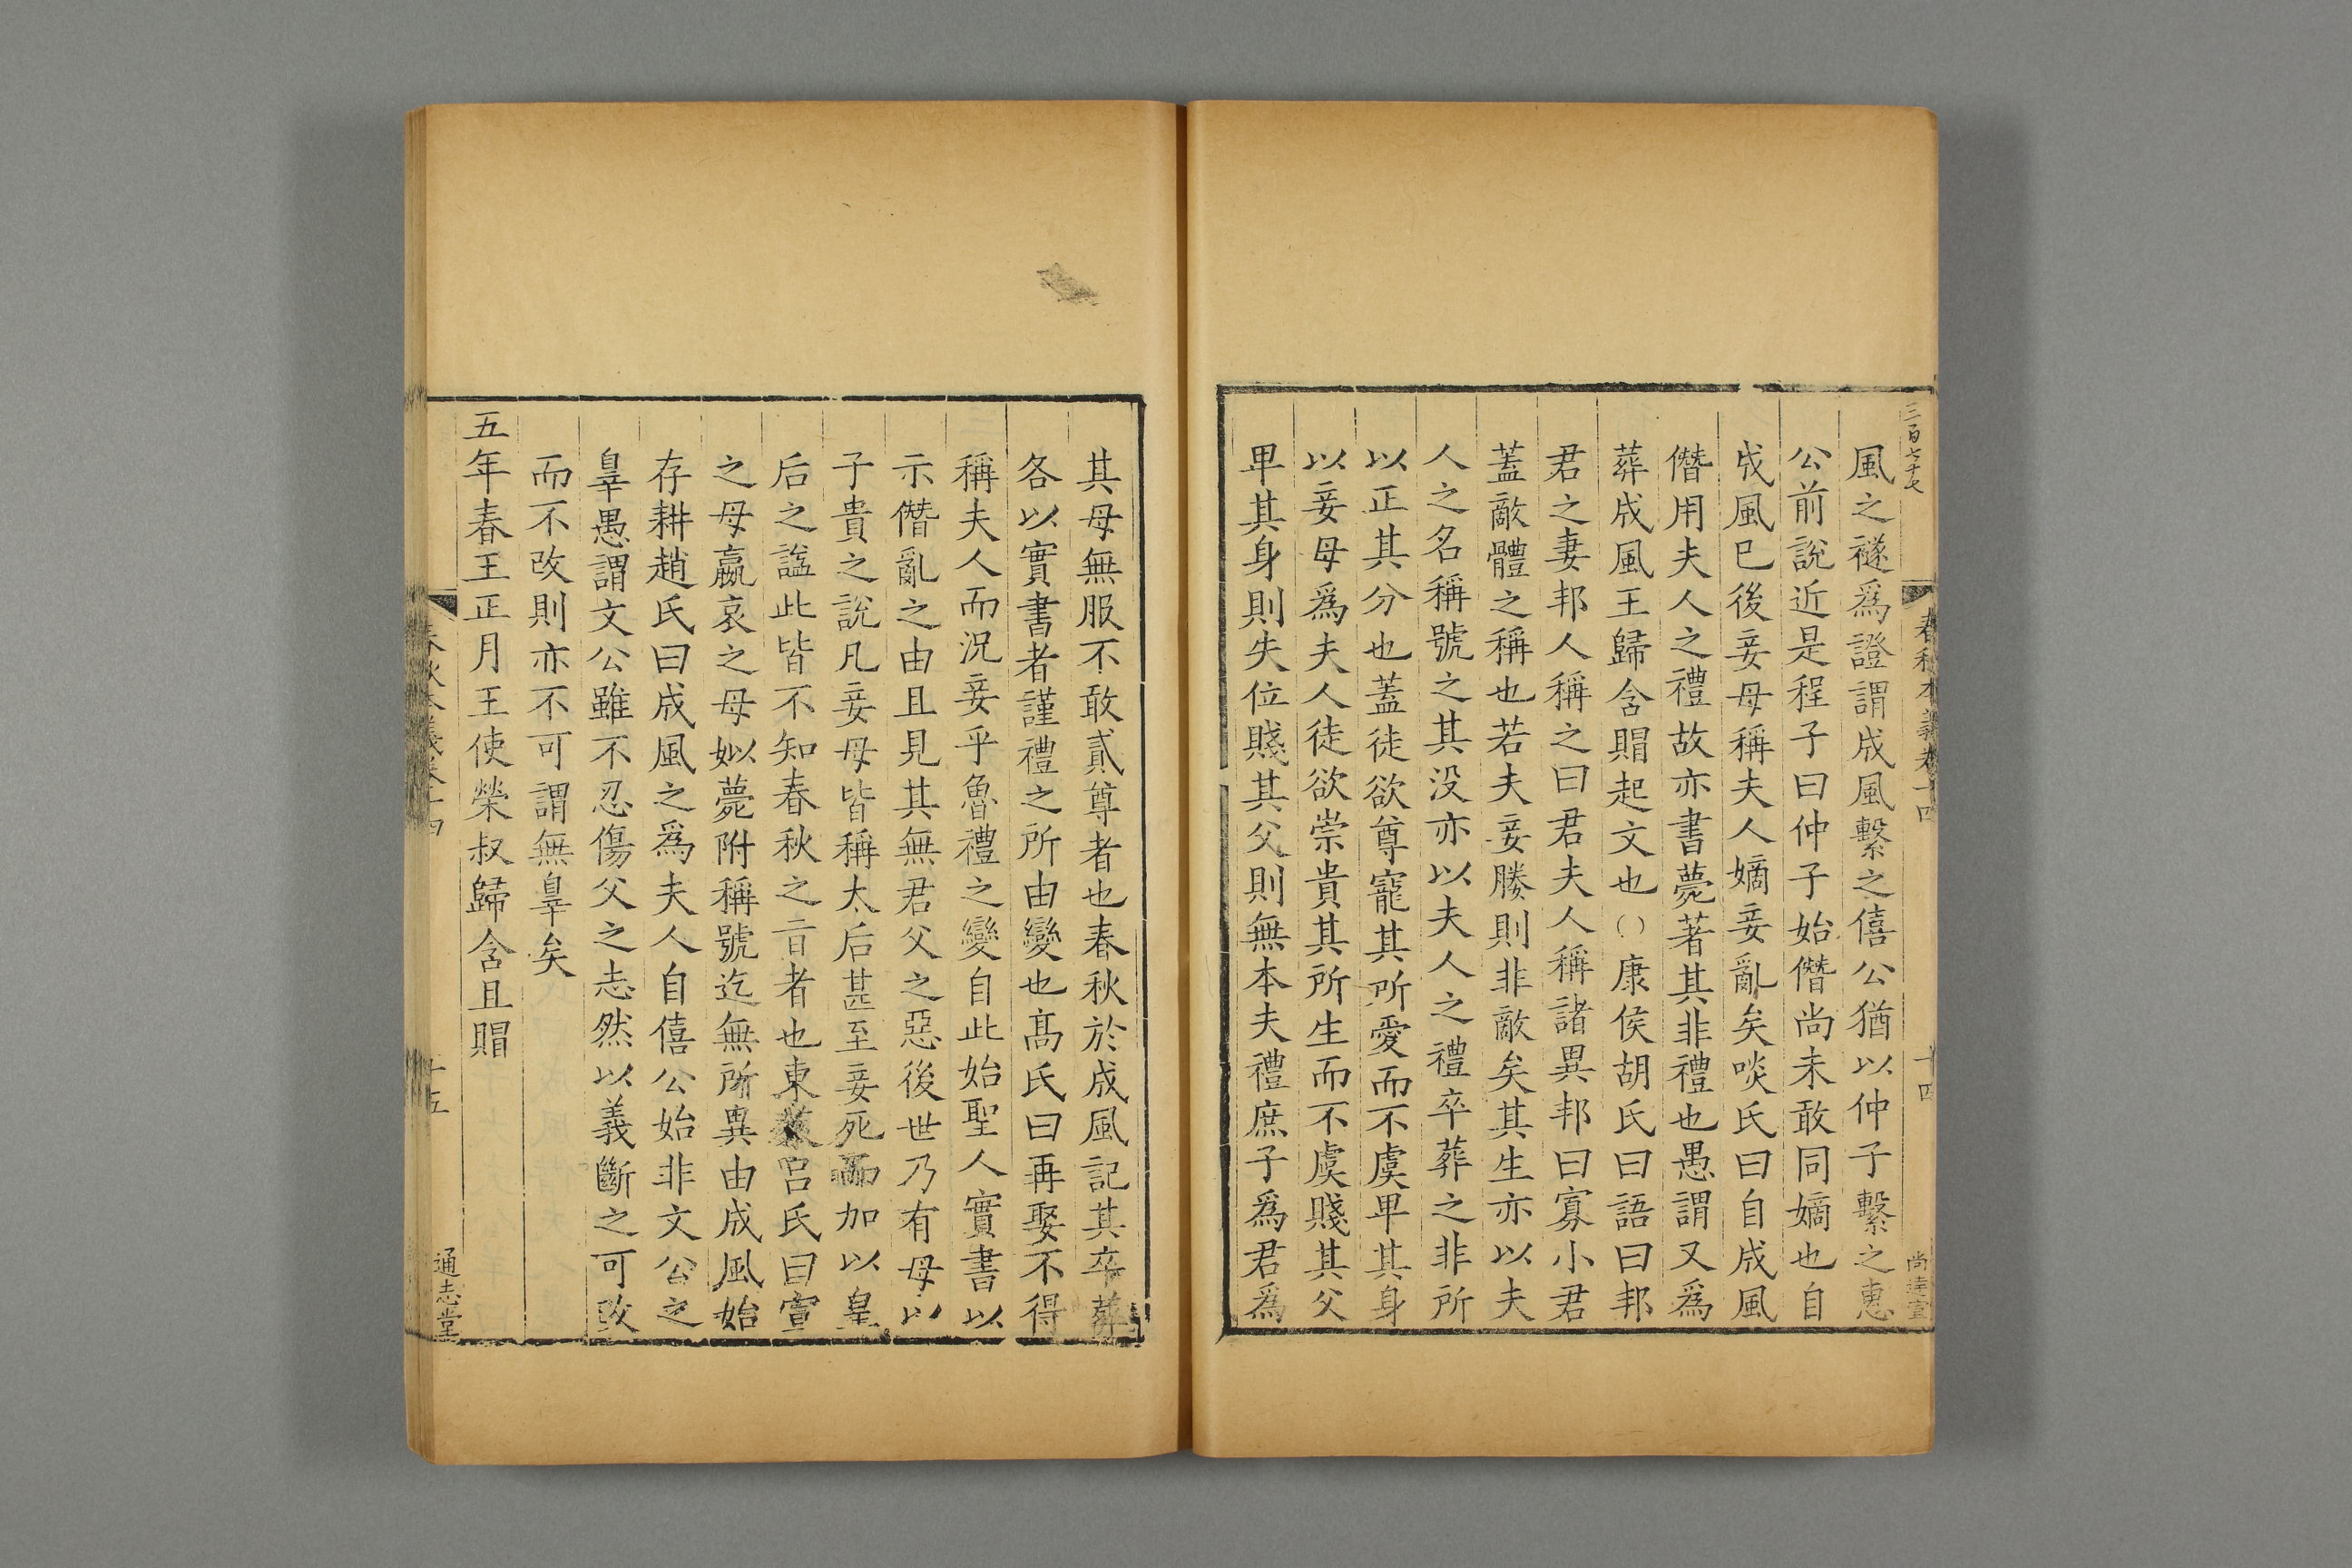 三百七十七
春秋本義卷十四
十四
風之襚爲證謂成風繫之僖公猶以仲子繫之惠
公前說近是程子曰仲子始僭尚未敢同嫡也自
成風已後妾母稱夫人嫡妾亂矣啖氏曰自成風
僭用夫人之禮故亦書薨著其非禮也愚謂又爲
葬成風王歸含賵起文也○康侯胡氏曰語曰邦
君之妻邦人稱之曰君夫人稱諸異邦曰寡小君
蓋敵體之稱也若夫妾媵則非敵矣其生亦以夫
人之名稱號之其没亦以夫人之禮卒葬之非所
以正其分也蓋徒欲尊寵其所愛而不虞卑其身
以妾母爲夫人徒欲崇貴其所生而不虞賤其父
卑其身則失位賤其父則無本夫禮庶子爲君爲
其母無服不敢貳尊者也春秋於成風記其卒葬
各以實書者謹禮之所由變也髙氏曰再娶不得
稱夫人而況妾乎魯禮之變自此始聖人實書以
示僭亂之由且見其無君父之惡後世乃有母以
子貴之說凡妾母皆稱太后甚至妾死而加以皇
后之諡此皆不知春秋之旨者也東萊吕氏曰宣
之母嬴哀之母姒薨附稱號迄無所異由成風始
存耕趙氏曰成風之爲夫人自僖公始非文公之
辠愚謂文公雖不忍傷父之志然以義斷之可改
而不改則亦不可謂無辠矣
五年春王正月王使榮叔歸含且賵
春秋本義卷十四
十五
通志堂